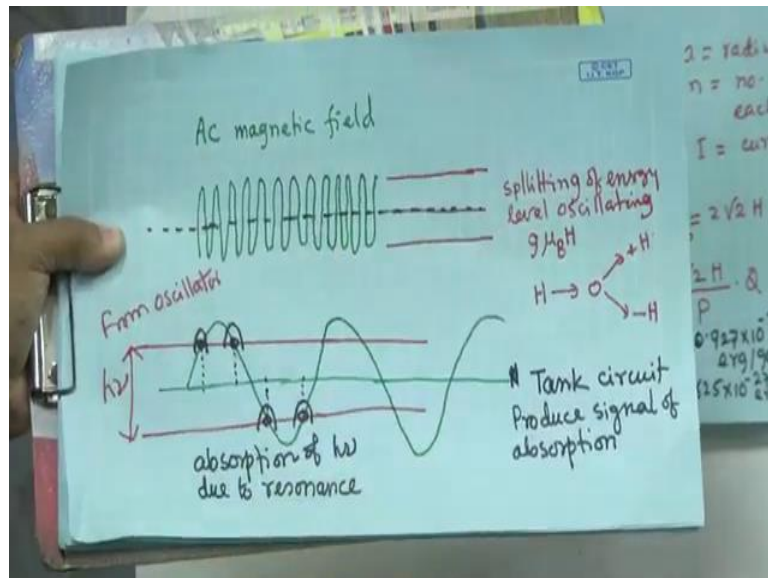 AC magnetic field
splitting of energy
level oscillating
gμ_BH
H → O
+H
−H
From oscillator
hν
Tank circuit
Produce signal of
absorption
absorption of hν
due to resonance
a = radiu
n = no.
each
I = cur
= 2√2 H
P
. Q
0.927×10⁻
erg/g